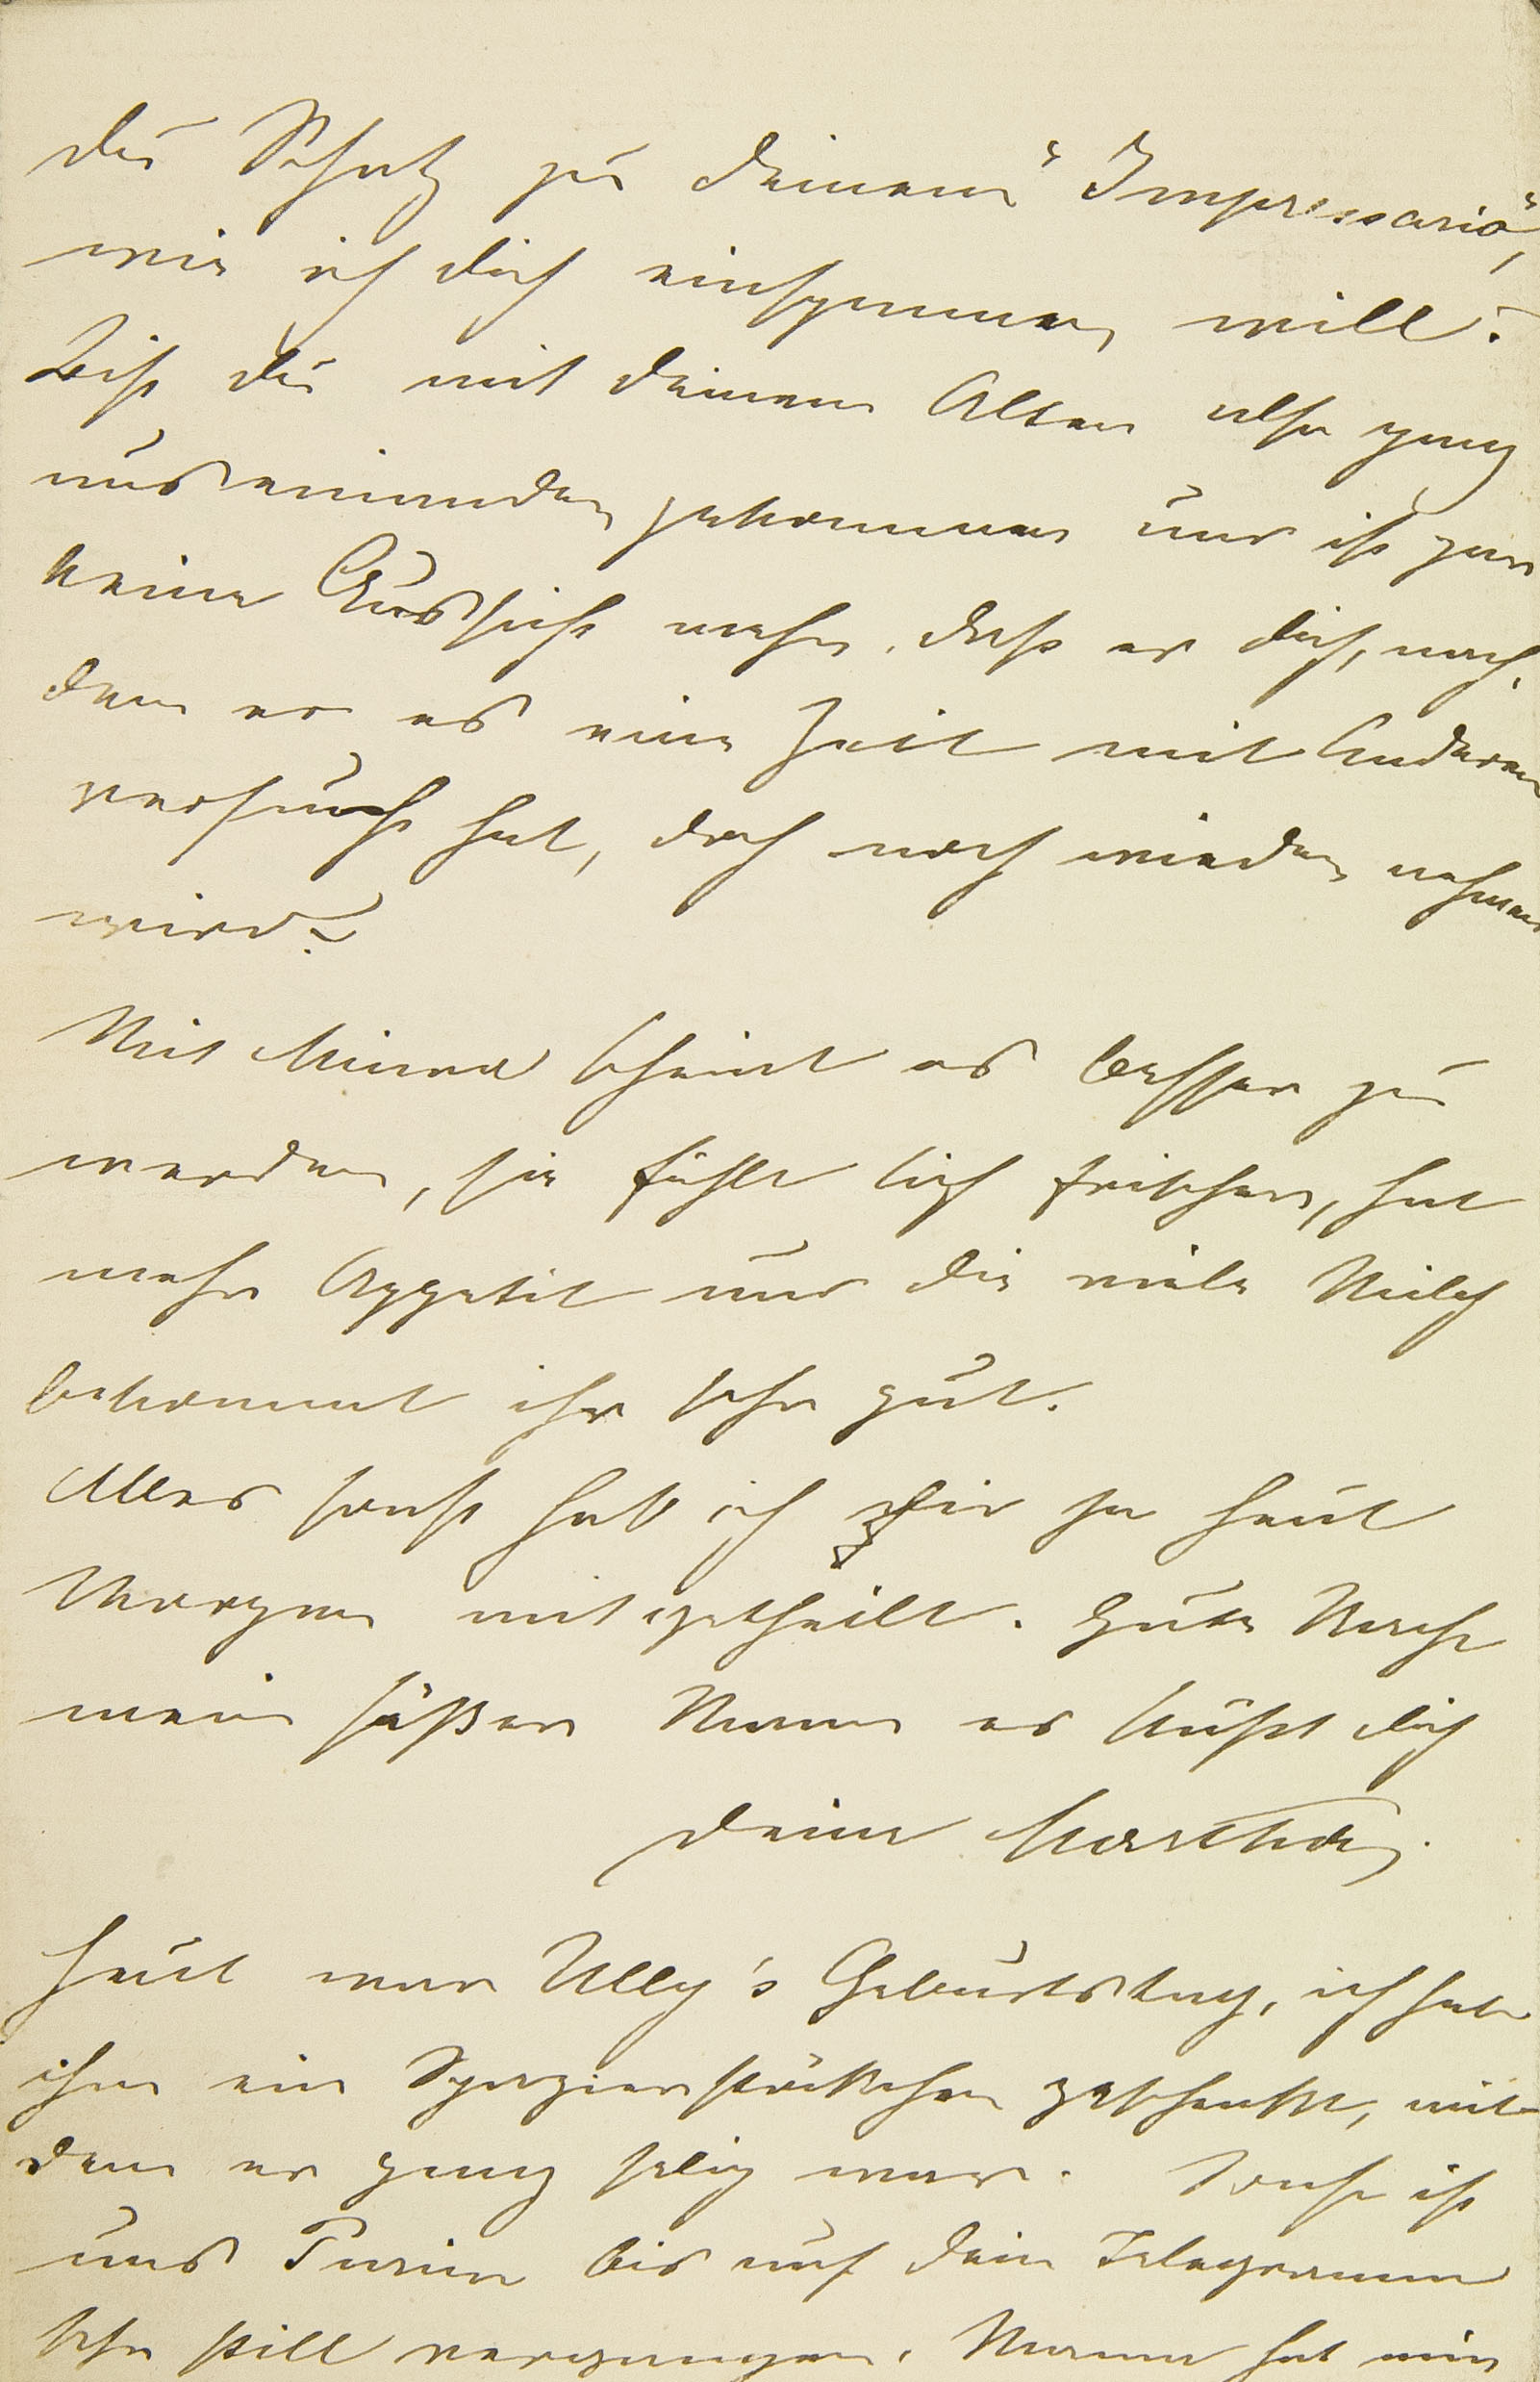 du Schatz zu deinem "Impressario",
wie ich dich einspannen will?
Bist du mit deinem Alten also ganz
auseinander gekommen und ist gar
keine Aussicht mehr, daß er dich, nach-
dem er es eine Zeit mit Anderen
versucht hat, doch noch wieder nehmen
wird?
Mit Minna scheint es besser zu
werden, sie fühlt sich frischer, hat
mehr Appetit und die viele Milch
bekommt ihr sehr gut.
Alles sonst hab ich dir ja heut
Morgen mitgetheilt. Gute Nacht
mein süßer Mann es küßt dich
deine Martha.
Heut war Ully's Geburtstag, ich hab
ihm ein Spazierstöckchen geschenkt, mit
dem er ganz selig war. Sonst ist
uns bis auf dein Telegramm
sehr still vergangen. Mama hat mir